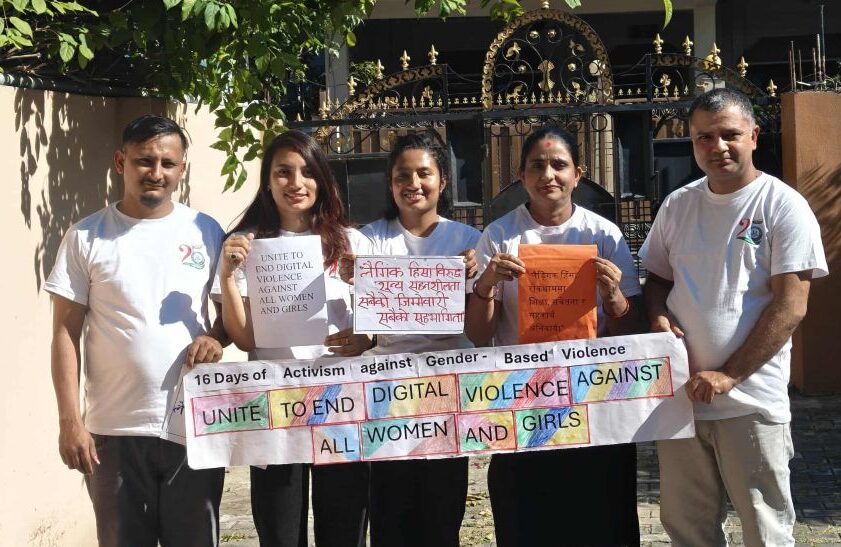 UNITE TO
END DIGITAL
VIOLENCE
AGAINST
ALL WOMEN
AND GIRLS
लैंगिक हिंसा विरुद्ध
शून्य सहनशीलता
सबैको जिम्मेवारी
सबैको सहभागिता
लैङ्गिक हिंसा
रोकथाममा
शिक्षा, सचेतना र
सहकार्य
अनिवार्य।
16 Days of Activism against Gender - Based Violence
UNITE TO END DIGITAL VIOLENCE AGAINST
ALL WOMEN AND GIRLS